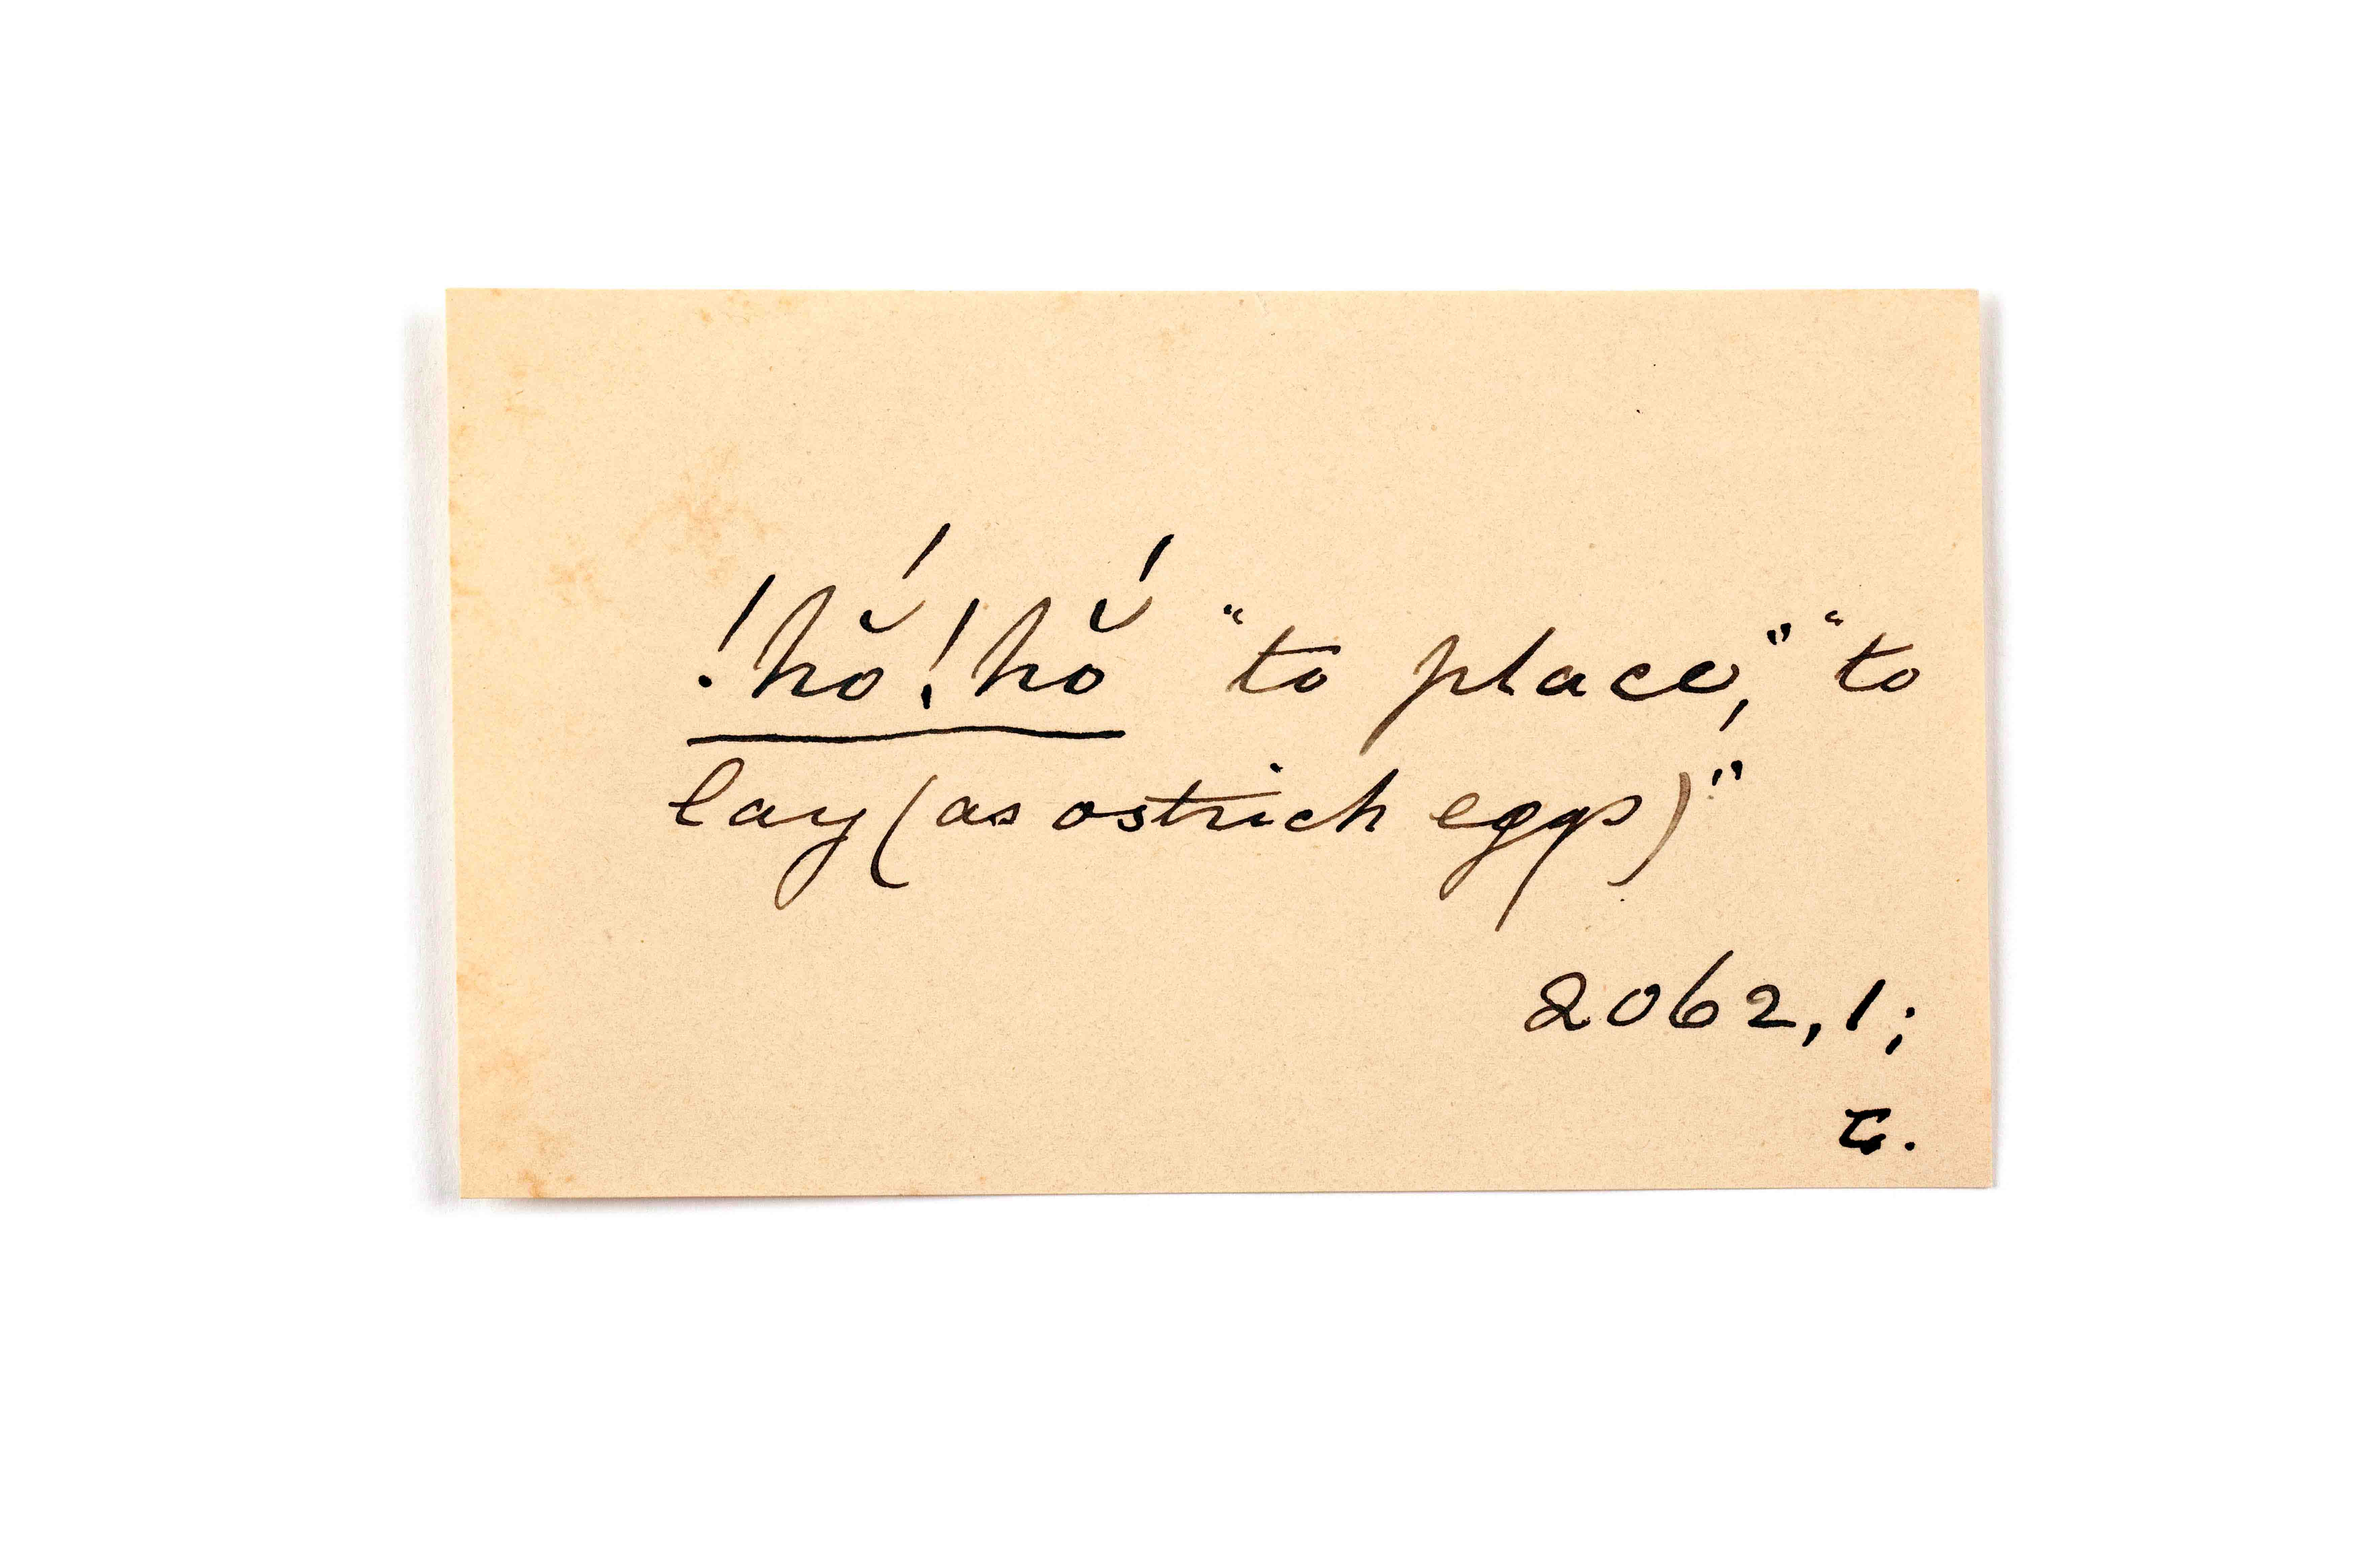 !hŏ́!hŏ́ "to place," "to
lay (as ostrich eggs)"
2062,1;